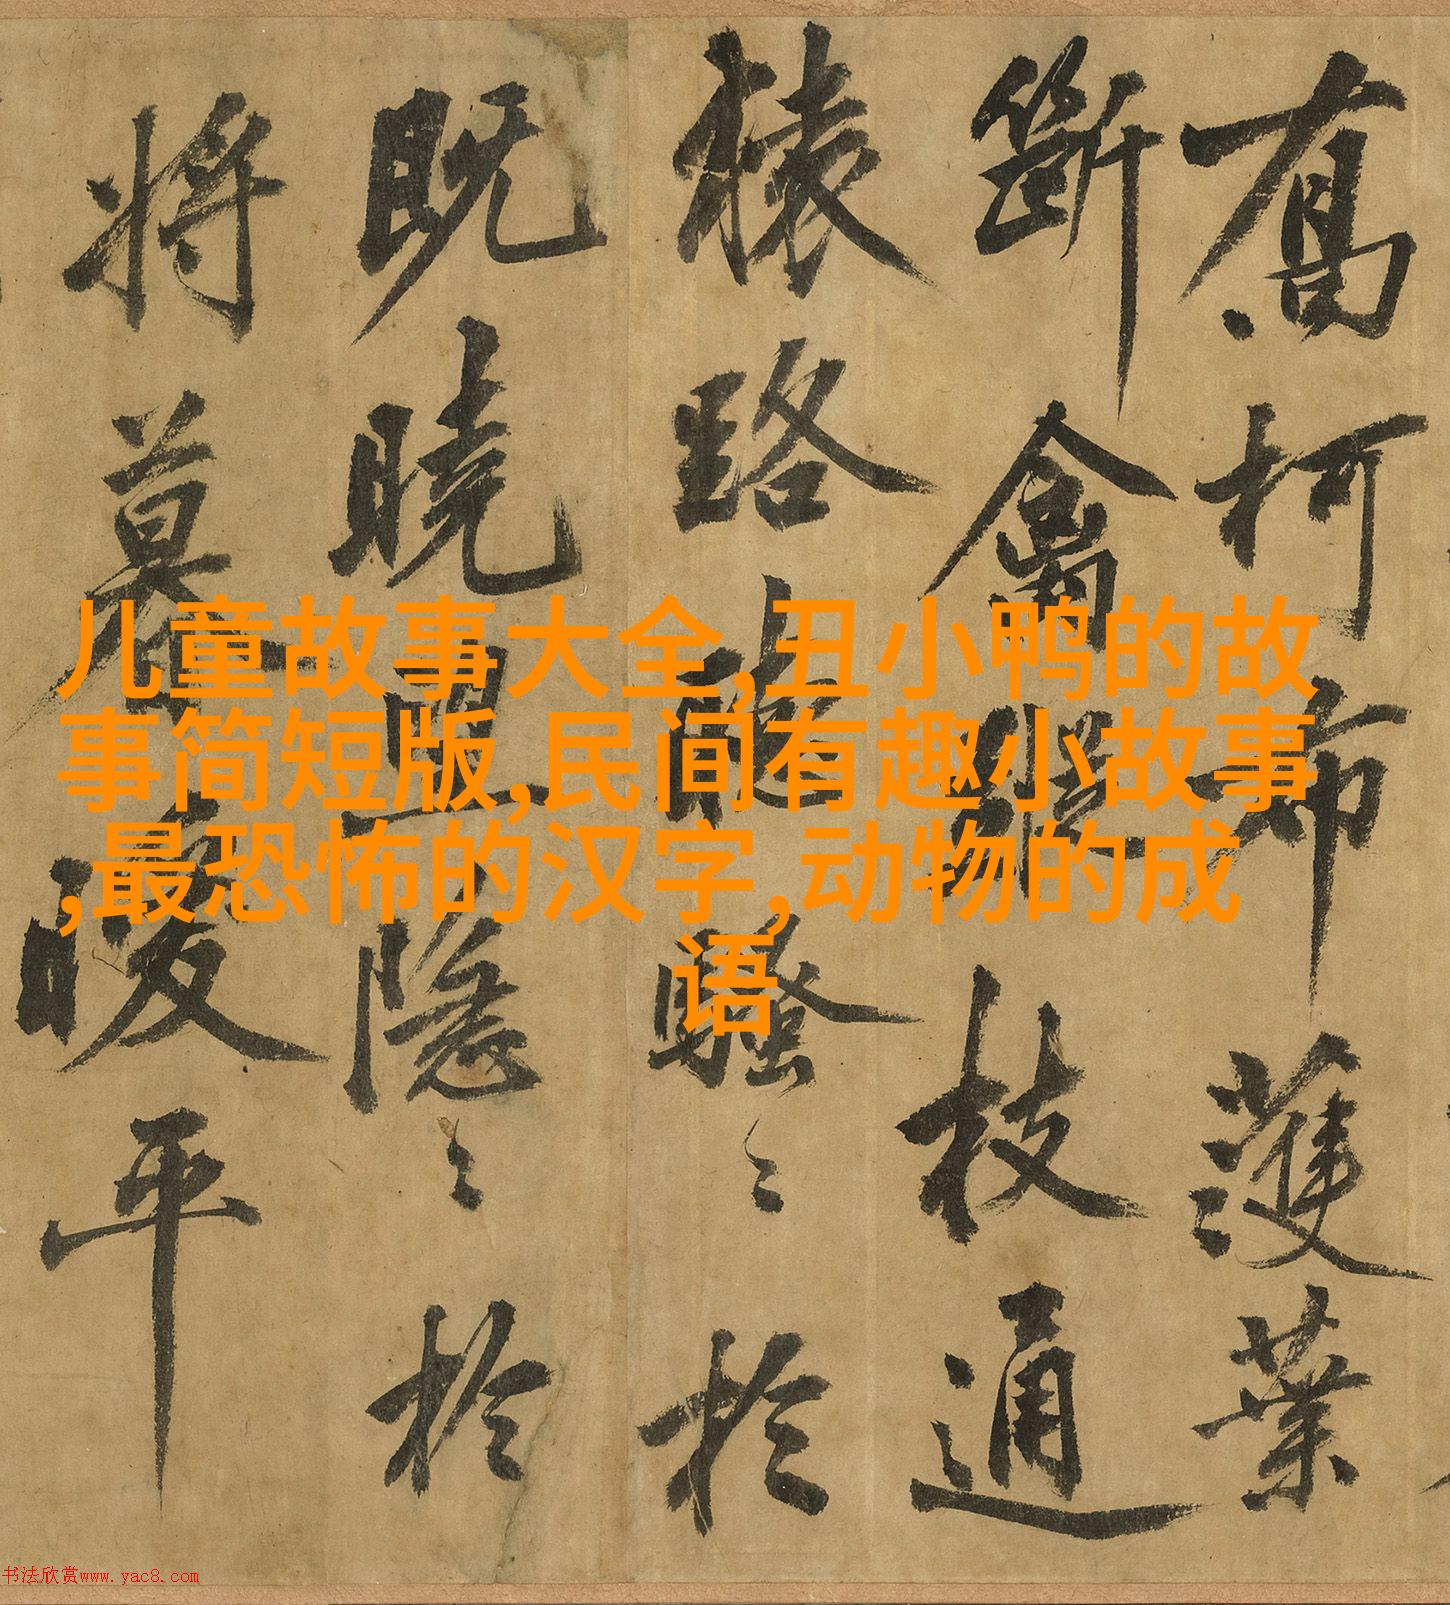 喬柯布濩葉
斷禽蹤枝通
猿路聽騷〻於
既曉且隱〻於
將暮暖平
儿童故事大全,丑小鸭的故
事简短版,民间有趣小故事
,最恐怖的汉字,动物的成
语
书法欣赏www.yac8.com